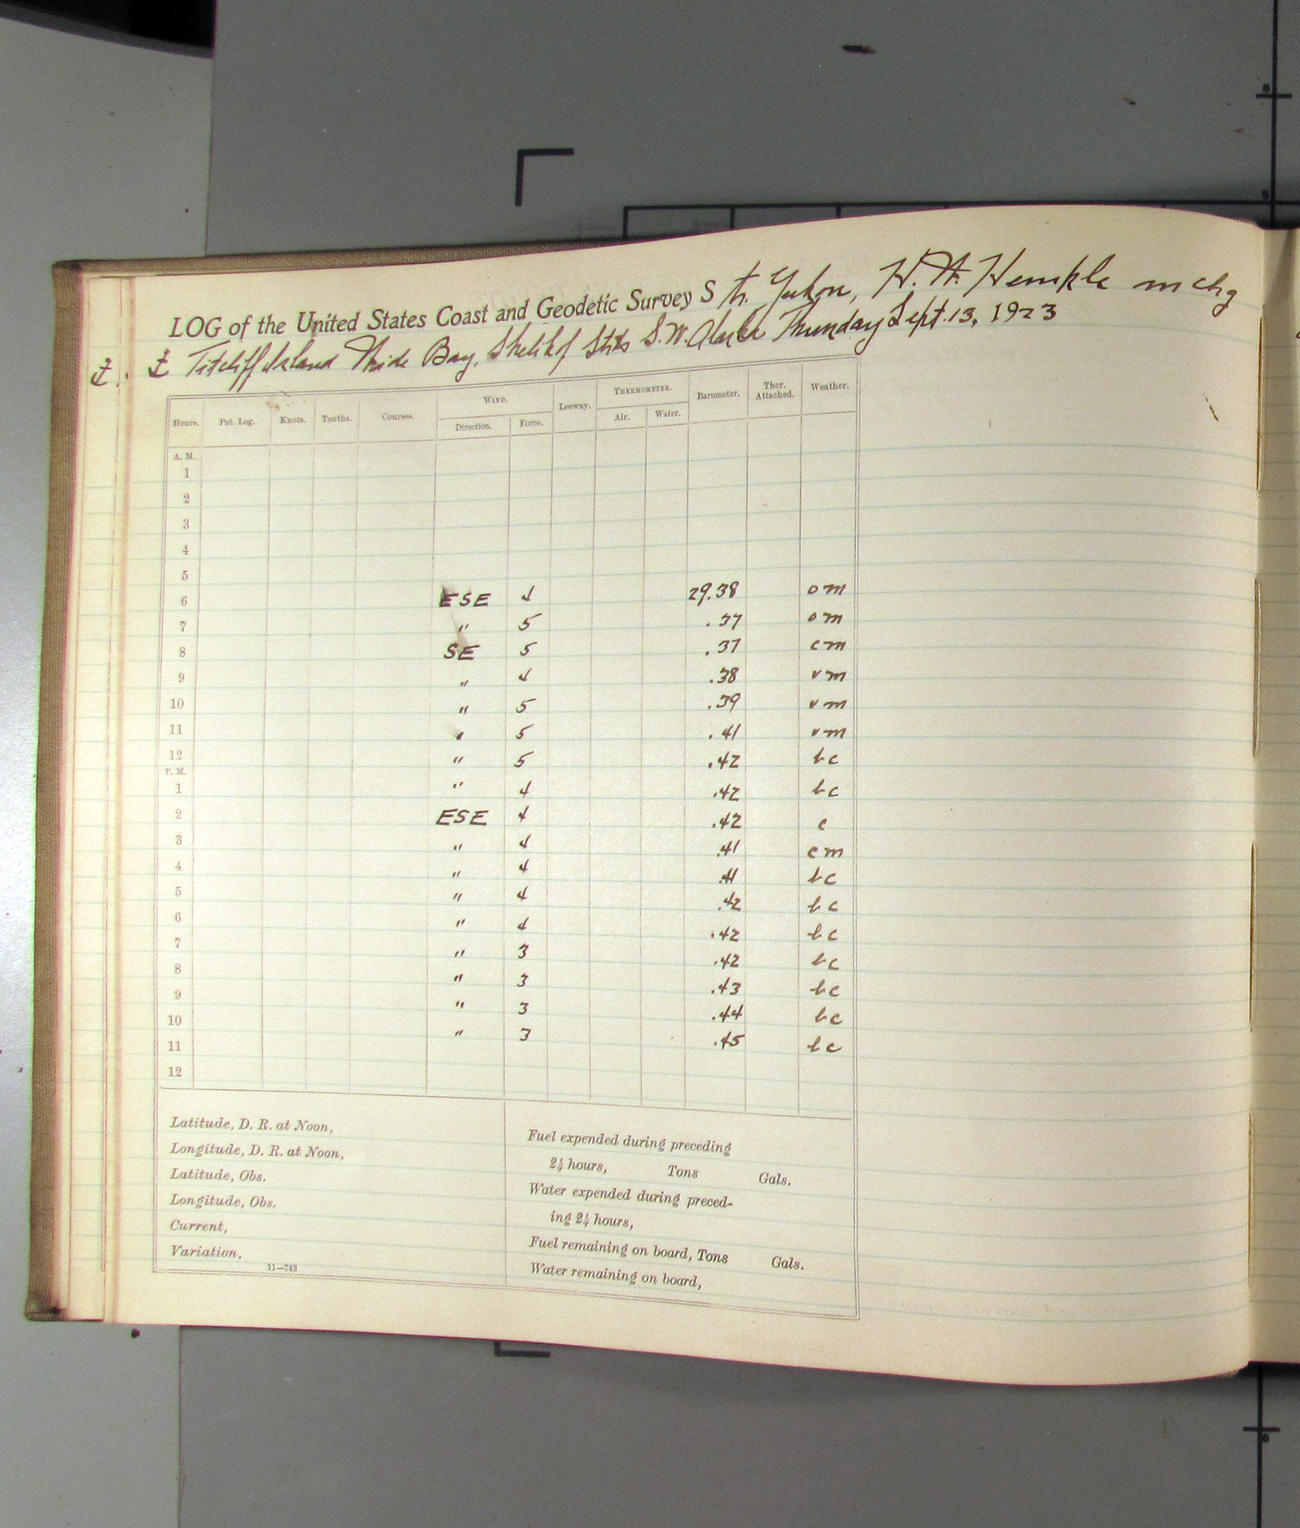 LOG of the United States Coast and Geodetic Survey Str. Yukon, H. A. Hemple in chg
Titcliff Island Wide Bay, Shelikof Strts S.W. Alaska Thursday Sept. 13, 1923
Hours. Pat. Log. Knots. Tenths. Courses. WIND. Leeway. THERMOMETER. Barometer. Ther. Attached. Weather.
Direction. Force. Air. Water.
A. M.
1
2
3
4
5
6 ESE 4 29.38 o m
7 " 5 .37 o m
8 SE 5 .37 c m
9 " 4 .38 v m
10 " 5 .39 v m
11 " 5 .41 v m
12 " 5 .42 b c
P. M.
1 " 4 .42 b c
2 ESE 4 .42 c
3 " 4 .41 c m
4 " 4 .41 b c
5 " 4 .42 b c
6 " 4 .42 b c
7 " 3 .42 b c
8 " 3 .43 b c
9 " 3 .44 b c
10 " 3 .45 b c
11
12
Latitude, D. R. at Noon,
Longitude, D. R. at Noon,
Latitude, Obs.
Longitude, Obs.
Current,
Variation,
11—743
Fuel expended during preceding
24 hours, Tons Gals.
Water expended during preced-
ing 24 hours,
Fuel remaining on board, Tons Gals.
Water remaining on board,